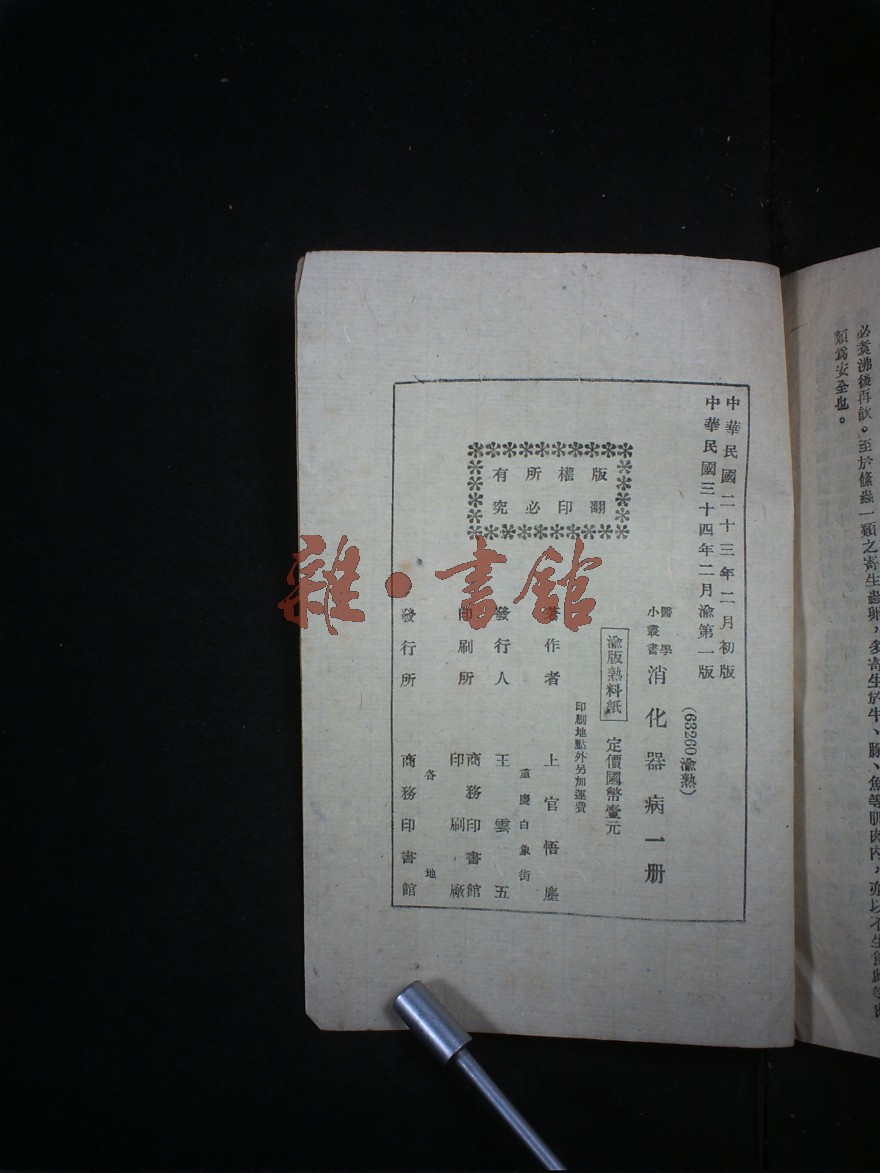 必煑沸後再飲。至於絛蟲一類之寄生蟲卵，多寄生於牛、豚、魚等肌肉内，亦以不生食此等肉
類爲安全也。
中華民國二十三年二月初版
中華民國三十四年二月渝第一版
(63260渝熟)
醫學
小叢書
消化器病一册
渝版熟料紙
定價國幣壹元
印刷地點外另加運費
版權所有
翻印必究
著作者 上官悟塵
重慶白象街
發行人 王雲五
印刷所 商務印書館
印刷廠
各地
發行所 商務印書館
雜·書館